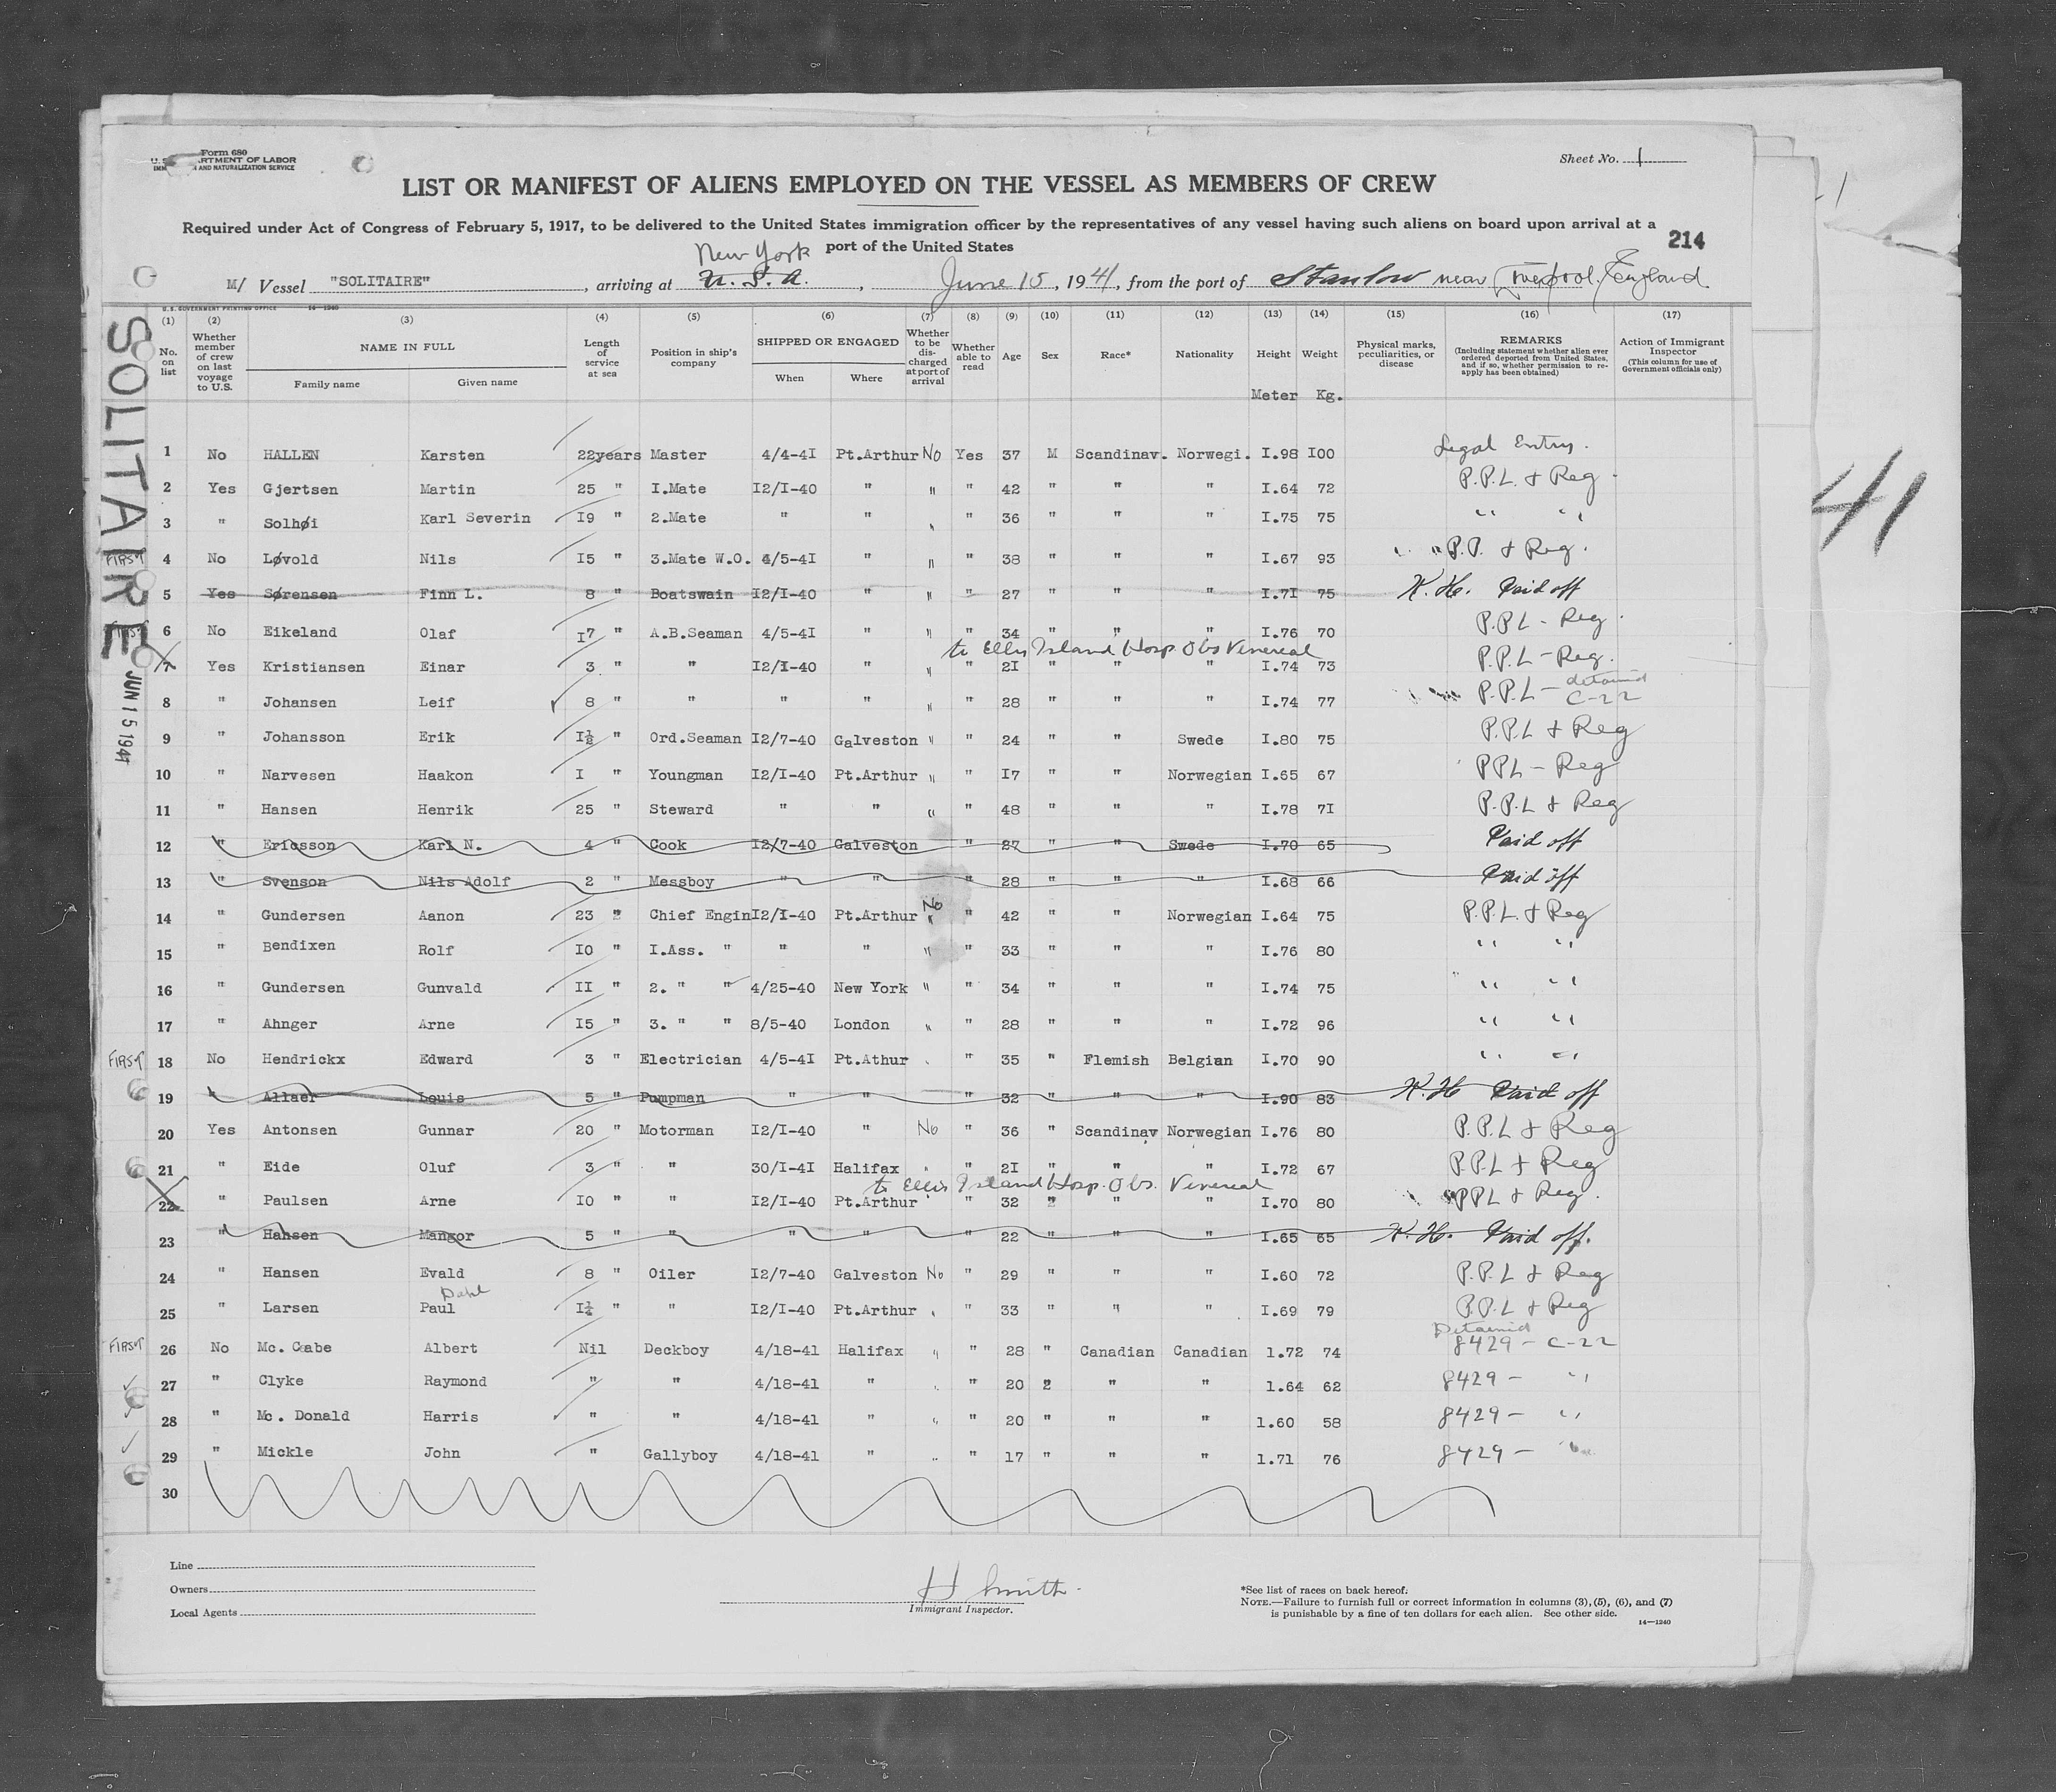 Form 680
U. S. DEPARTMENT OF LABOR
IMMIGRATION AND NATURALIZATION SERVICE
Sheet No. 1
LIST OR MANIFEST OF ALIENS EMPLOYED ON THE VESSEL AS MEMBERS OF CREW
Required under Act of Congress of February 5, 1917, to be delivered to the United States immigration officer by the representatives of any vessel having such aliens on board upon arrival at a
port of the United States
214
New York
M/ Vessel "SOLITAIRE", arriving at U. S. A., June 15, 1941, from the port of Stanlow near Liverpool, England
U.S. GOVERNMENT PRINTING OFFICE 14—1240
(1) (2) (3) (4) (5) (6) (7) (8) (9) (10) (11) (12) (13) (14) (15) (16) (17)
No. on list
Whether member of crew on last voyage to U.S.
NAME IN FULL
Family name Given name
Length of service at sea
Position in ship's company
SHIPPED OR ENGAGED
When Where
Whether to be discharged at port of arrival
Whether able to read
Age
Sex
Race*
Nationality
Height
Weight
Physical marks, peculiarities, or disease
REMARKS
(Including statement whether alien ever ordered deported from United States, and if so, whether permission to re-apply has been obtained)
Action of Immigrant Inspector
(This column for use of Government officials only)
Meter Kg.
SOLITAIRE
JUN 15 1941
41
1 No HALLEN Karsten 22years Master 4/4-4I Pt.Arthur No Yes 37 M Scandinav. Norwegi. I.98 I00 Legal Entry.
2 Yes Gjertsen Martin 25 " I.Mate I2/I-40 " " " 42 " " " I.64 72 P.P.L. & Reg.
3 " Solhøi Karl Severin I9 " 2.Mate " " " " 36 " " " I.75 75 " "
FIRST 4 No Løvold Nils I5 " 3.Mate W.O. 4/5-4I " " " 38 " " " I.67 93 " " P.P. & Reg.
5 Yes Sørensen Finn L. 8 " Boatswain I2/I-40 " " " 27 " " " I.7I 75 K.H. Paid off
6 No Eikeland Olaf I7 " A.B.Seaman 4/5-4I " " " 34 " " " I.76 70 P.P.L - Reg.
to Ellis Island Hosp Obs Venereal
7 Yes Kristiansen Einar 3 " " I2/I-40 " " " 2I " " " I.74 73 P.P.L - Reg.
8 " Johansen Leif 8 " " " " " " 28 " " " I.74 77 P.P.L - detained C-22
9 " Johansson Erik I½ " Ord.Seaman I2/7-40 Galveston " " 24 " " Swede I.80 75 P.P.L & Reg
10 " Narvesen Haakon I " Youngman I2/I-40 Pt.Arthur " " I7 " " Norwegian I.65 67 PPL - Reg
11 " Hansen Henrik 25 " Steward " " " " 48 " " " I.78 7I P.P.L & Reg
12 " Ericsson Karl N. 4 " Cook I2/7-40 Galveston " 27 " " Swede I.70 65 Paid off
13 " Svenson Nils Adolf 2 " Messboy " " " 28 " " " I.68 66 Paid off
14 " Gundersen Aanon 23 " Chief Engin I2/I-40 Pt.Arthur No " " 42 " " Norwegian I.64 75 P.P.L. & Reg
15 " Bendixen Rolf I0 " I.Ass. " " " " " 33 " " " I.76 80 " "
16 " Gundersen Gunvald II " 2. " " 4/25-40 New York " " 34 " " " I.74 75 " "
17 " Ahnger Arne I5 " 3. " " 8/5-40 London " " 28 " " " I.72 96 " "
FIRST 18 No Hendrickx Edward 3 " Electrician 4/5-4I Pt.Athur " " 35 " Flemish Belgian I.70 90 " "
19 " Allaer Louis 5 " Pumpman " " " 32 " " " I.90 83 K.H Paid off
20 Yes Antonsen Gunnar 20 " Motorman I2/I-40 " No " 36 " Scandinav Norwegian I.76 80 P.P.L & Reg
21 " Eide Oluf 3 " " 30/I-4I Halifax " " 2I " " " I.72 67 P.P.L & Reg
to Ellis Island Hosp. Obs. Venereal
22 " Paulsen Arne I0 " " I2/I-40 Pt.Arthur " " 32 " " " I.70 80 PPL & Reg.
23 " Hansen Mangor 5 " " " " " 22 " " " I.65 65 K.H. Paid off.
24 " Hansen Evald 8 " Oiler I2/7-40 Galveston No " 29 " " " I.60 72 P.P.L & Reg
Dahl
25 " Larsen Paul I¼ " " I2/I-40 Pt.Arthur " " 33 " " " I.69 79 P.P.L & Reg
Detained
FIRST 26 No Mc. Cabe Albert Nil Deckboy 4/18-41 Halifax " " 28 " Canadian Canadian 1.72 74 8429 - C-22
27 " Clyke Raymond " " 4/18-41 " " " 20 " " " 1.64 62 8429 - "
28 " Mc. Donald Harris " " 4/18-41 " " " 20 " " " 1.60 58 8429 - "
29 " Mickle John " Gallyboy 4/18-41 " " " 17 " " " 1.71 76 8429 - "
30
Line
Owners
Local Agents
H Smith
Immigrant Inspector.
*See list of races on back hereof.
NOTE.—Failure to furnish full or correct information in columns (3), (5), (6), and (7)
is punishable by a fine of ten dollars for each alien. See other side.
14—1240